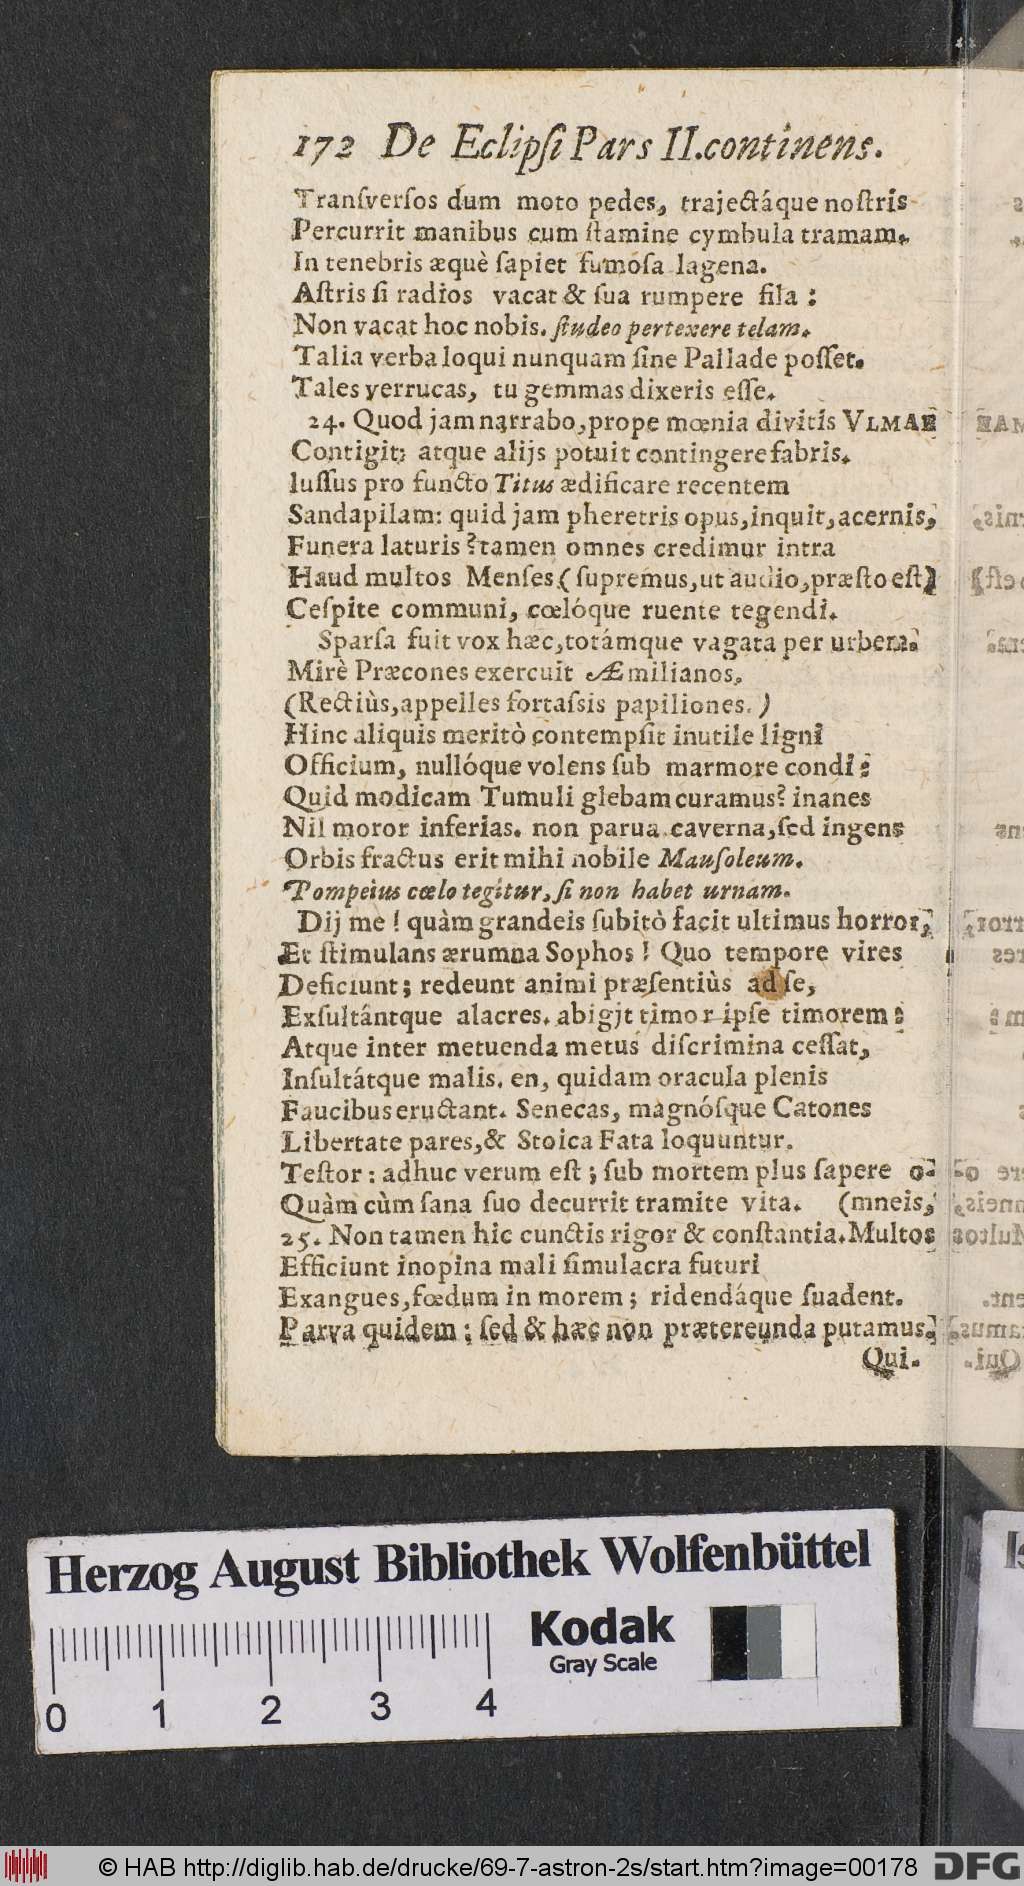 172 De Eclipſi Pars II. continens.
Tranſverſos dum moto pedes, trajectáque noſtris
Percurrit manibus cum ſtamine cymbula tramam.
In tenebris æquè ſapiet fumoſa lagena.
Aſtris ſi radios vacat & ſua rumpere fila:
Non vacat hoc nobis. ſtudeo pertexere telam.
Talia verba loqui nunquam ſine Pallade poſſet.
Tales verrucas, tu gemmas dixeris eſſe.
24. Quod jam narrabo, prope mœnia divitis VLMAE
Contigit; atque alijs potuit contingere fabris.
Iuſſus pro functo Titus ædificare recentem
Sandapilam: quid jam pheretris opus, inquit, acernis,
Funera laturis? tamen omnes credimur intra
Haud multos Menſes (ſupremus, ut audio, præſto eſt)
Ceſpite communi, cœlóque ruente tegendi.
Sparſa fuit vox hæc, totámque vagata per urbem.
Mirè Præcones exercuit Æmilianos.
(Rectiùs, appelles fortaſsis papiliones.)
Hinc aliquis meritò contempſit inutile ligni
Officium, nullóque volens ſub marmore condi:
Quid modicam Tumuli glebam curamus? inanes
Nil moror inferias. non parua caverna, ſed ingens
Orbis fractus erit mihi nobile Mauſoleum.
Pompeius cœlo tegitur, ſi non habet urnam.
Dij me! quàm grandeis ſubitò facit ultimus horror,
Et ſtimulans ærumna Sophos! Quo tempore vires
Deficiunt; redeunt animi præſentiùs ad ſe,
Exſultántque alacres. abigjt timor ipſe timorem:
Atque inter metuenda metus diſcrimina ceſſat,
Inſultátque malis. en, quidam oracula plenis
Faucibus eructant. Senecas, magnóſque Catones
Libertate pares, & Stoica Fata loquuntur.
Teſtor: adhuc verum eſt; ſub mortem plus ſapere o-
Quàm cùm ſana ſuo decurrit tramite vita. (mneis,
25. Non tamen hic cunctis rigor & conſtantia. Multos
Efficiunt inopina mali ſimulacra futuri
Exangues, fœdum in morem; ridendáque ſuadent.
Parva quidem; ſed & hæc non prætereunda putamus.
Qui.
Herzog August Bibliothek Wolfenbüttel
Kodak
Gray Scale
0 1 2 3 4
© HAB http://diglib.hab.de/drucke/69-7-astron-2s/start.htm?image=00178 DFG